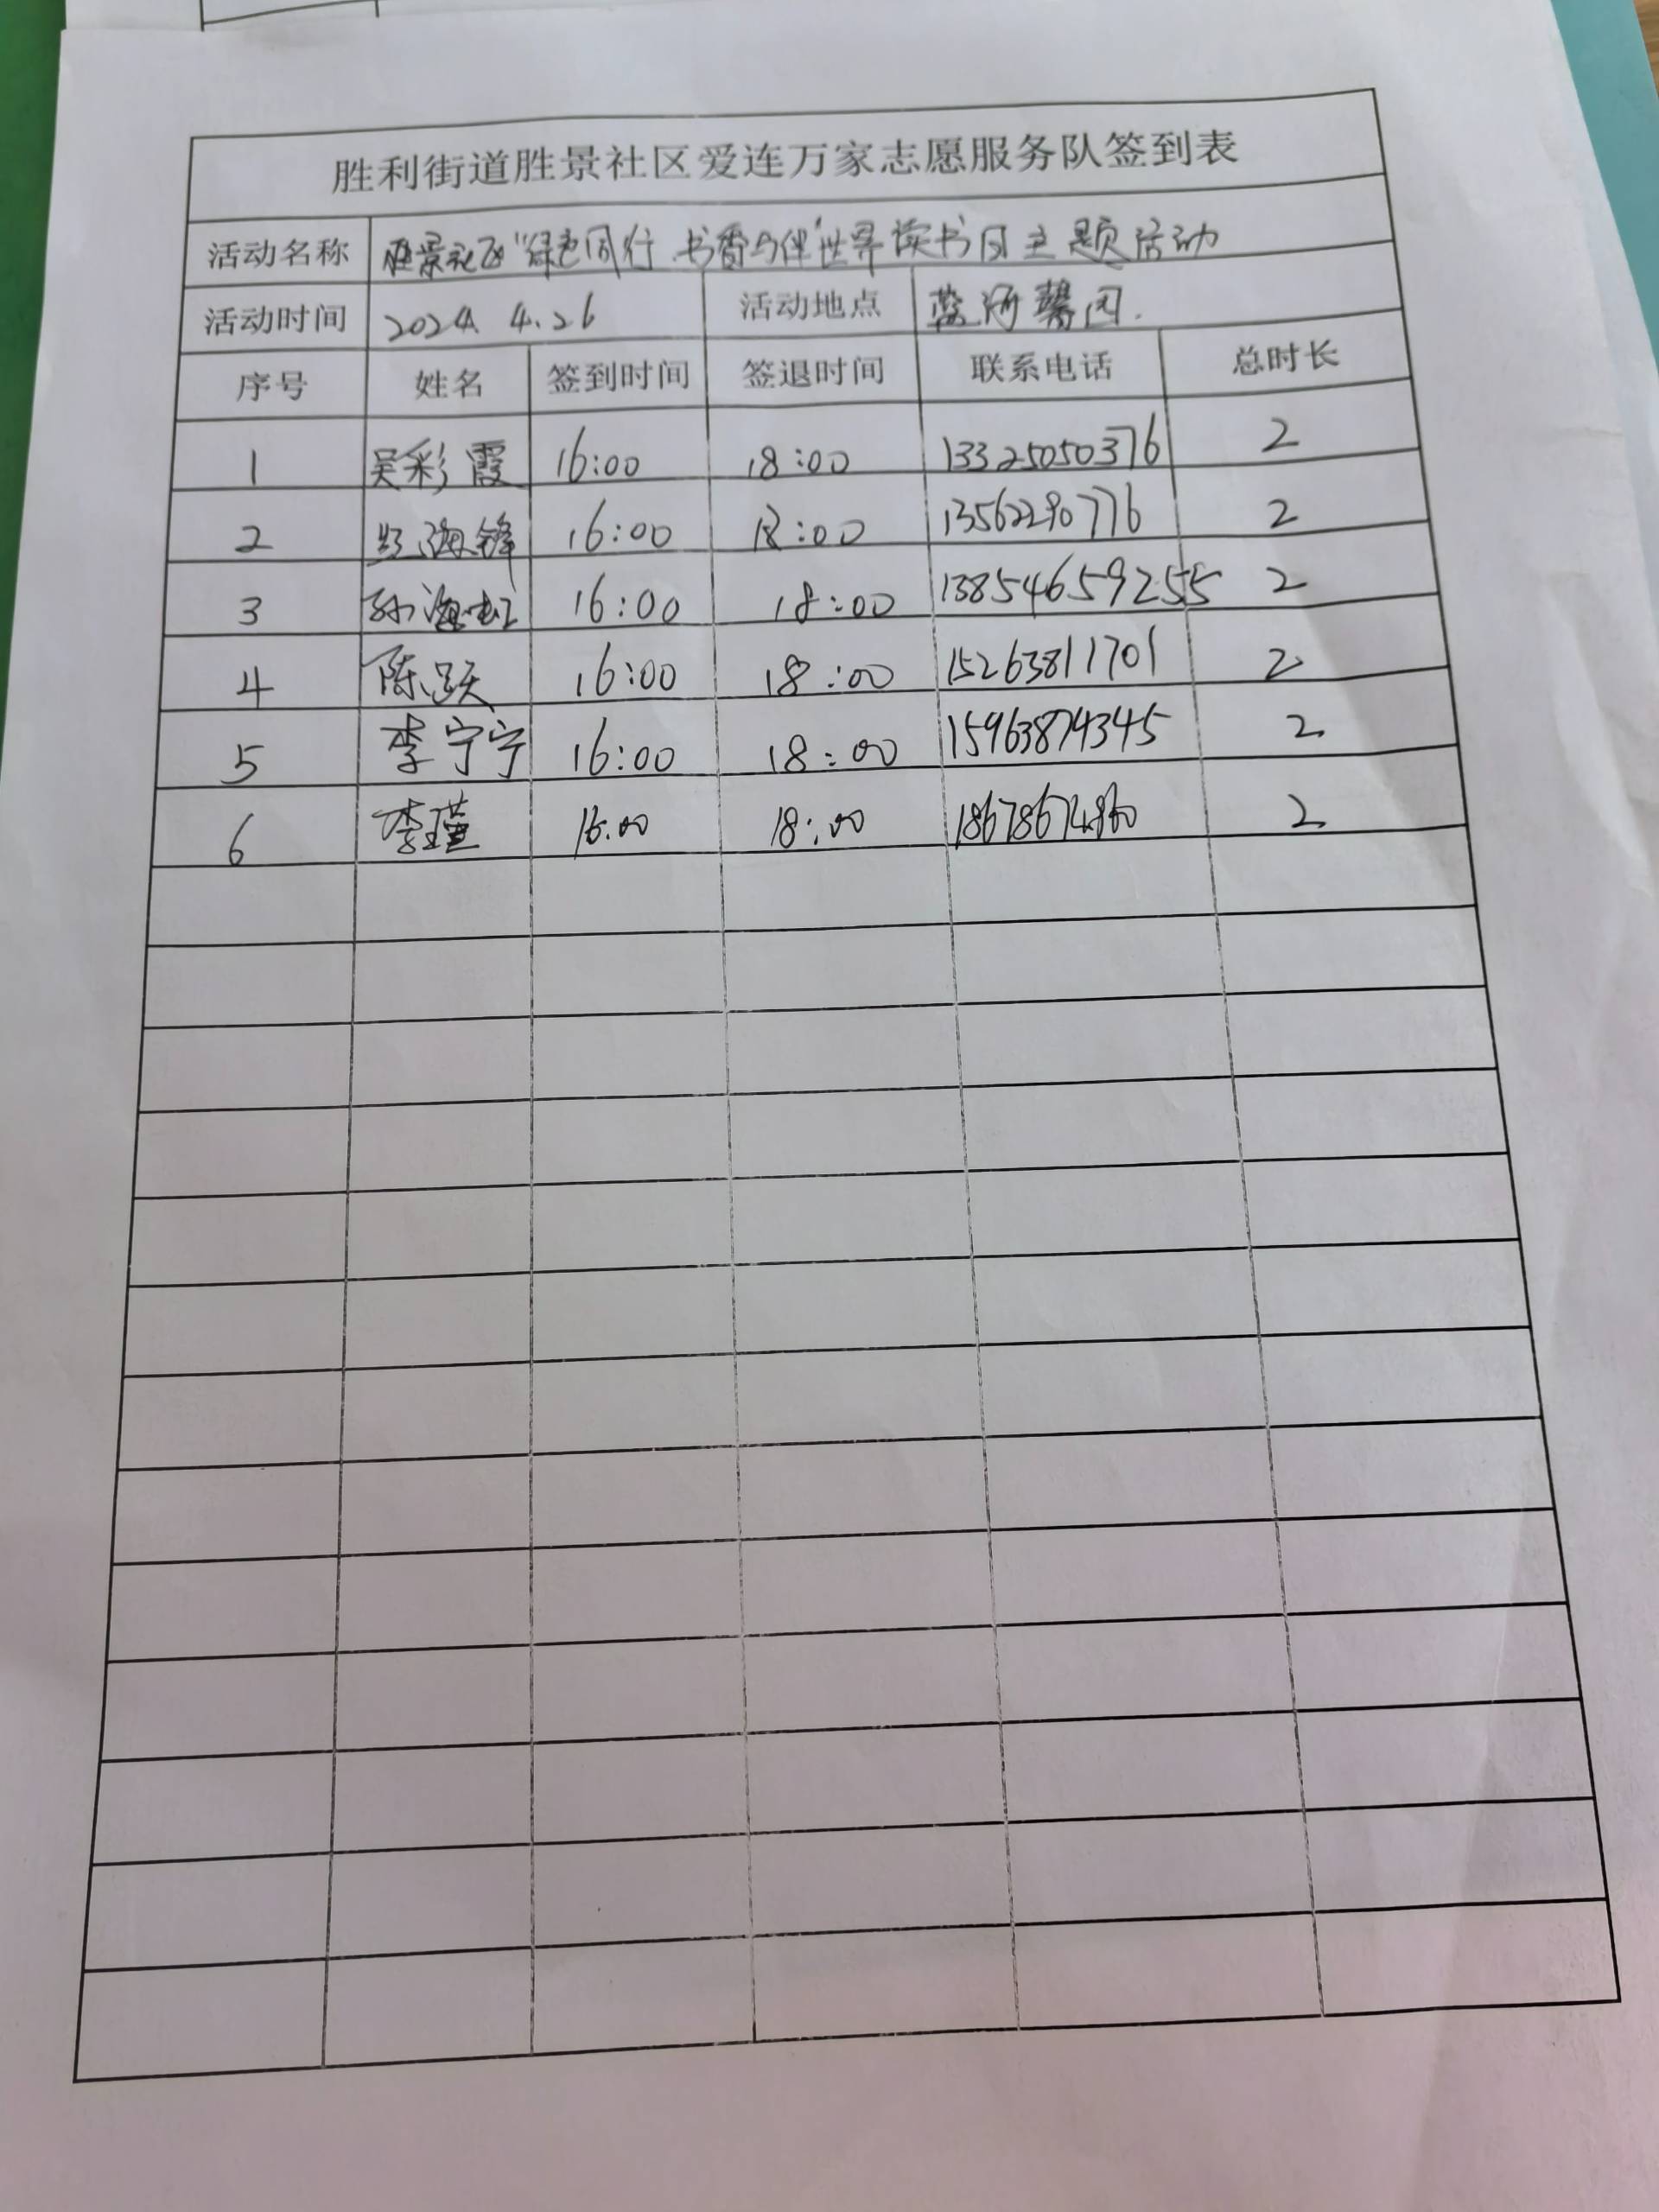 胜利街道胜景社区爱连万家志愿服务队签到表
活动名称 胜景社区"绿色同行 书香为伴"世界读书日主题活动
活动时间 2024 4.26 活动地点 蓝海馨园
序号 姓名 签到时间 签退时间 联系电话 总时长
1 吴彩霞 16:00 18:00 13325050376 2
2 海锋 16:00 18:00 13562290776 2
3 孙海虹 16:00 18:00 13854659255 2
4 陈跃 16:00 18:00 15263811701 2
5 李宁宁 16:00 18:00 15963874345 2
6 李瑾 16:00 18:00 2